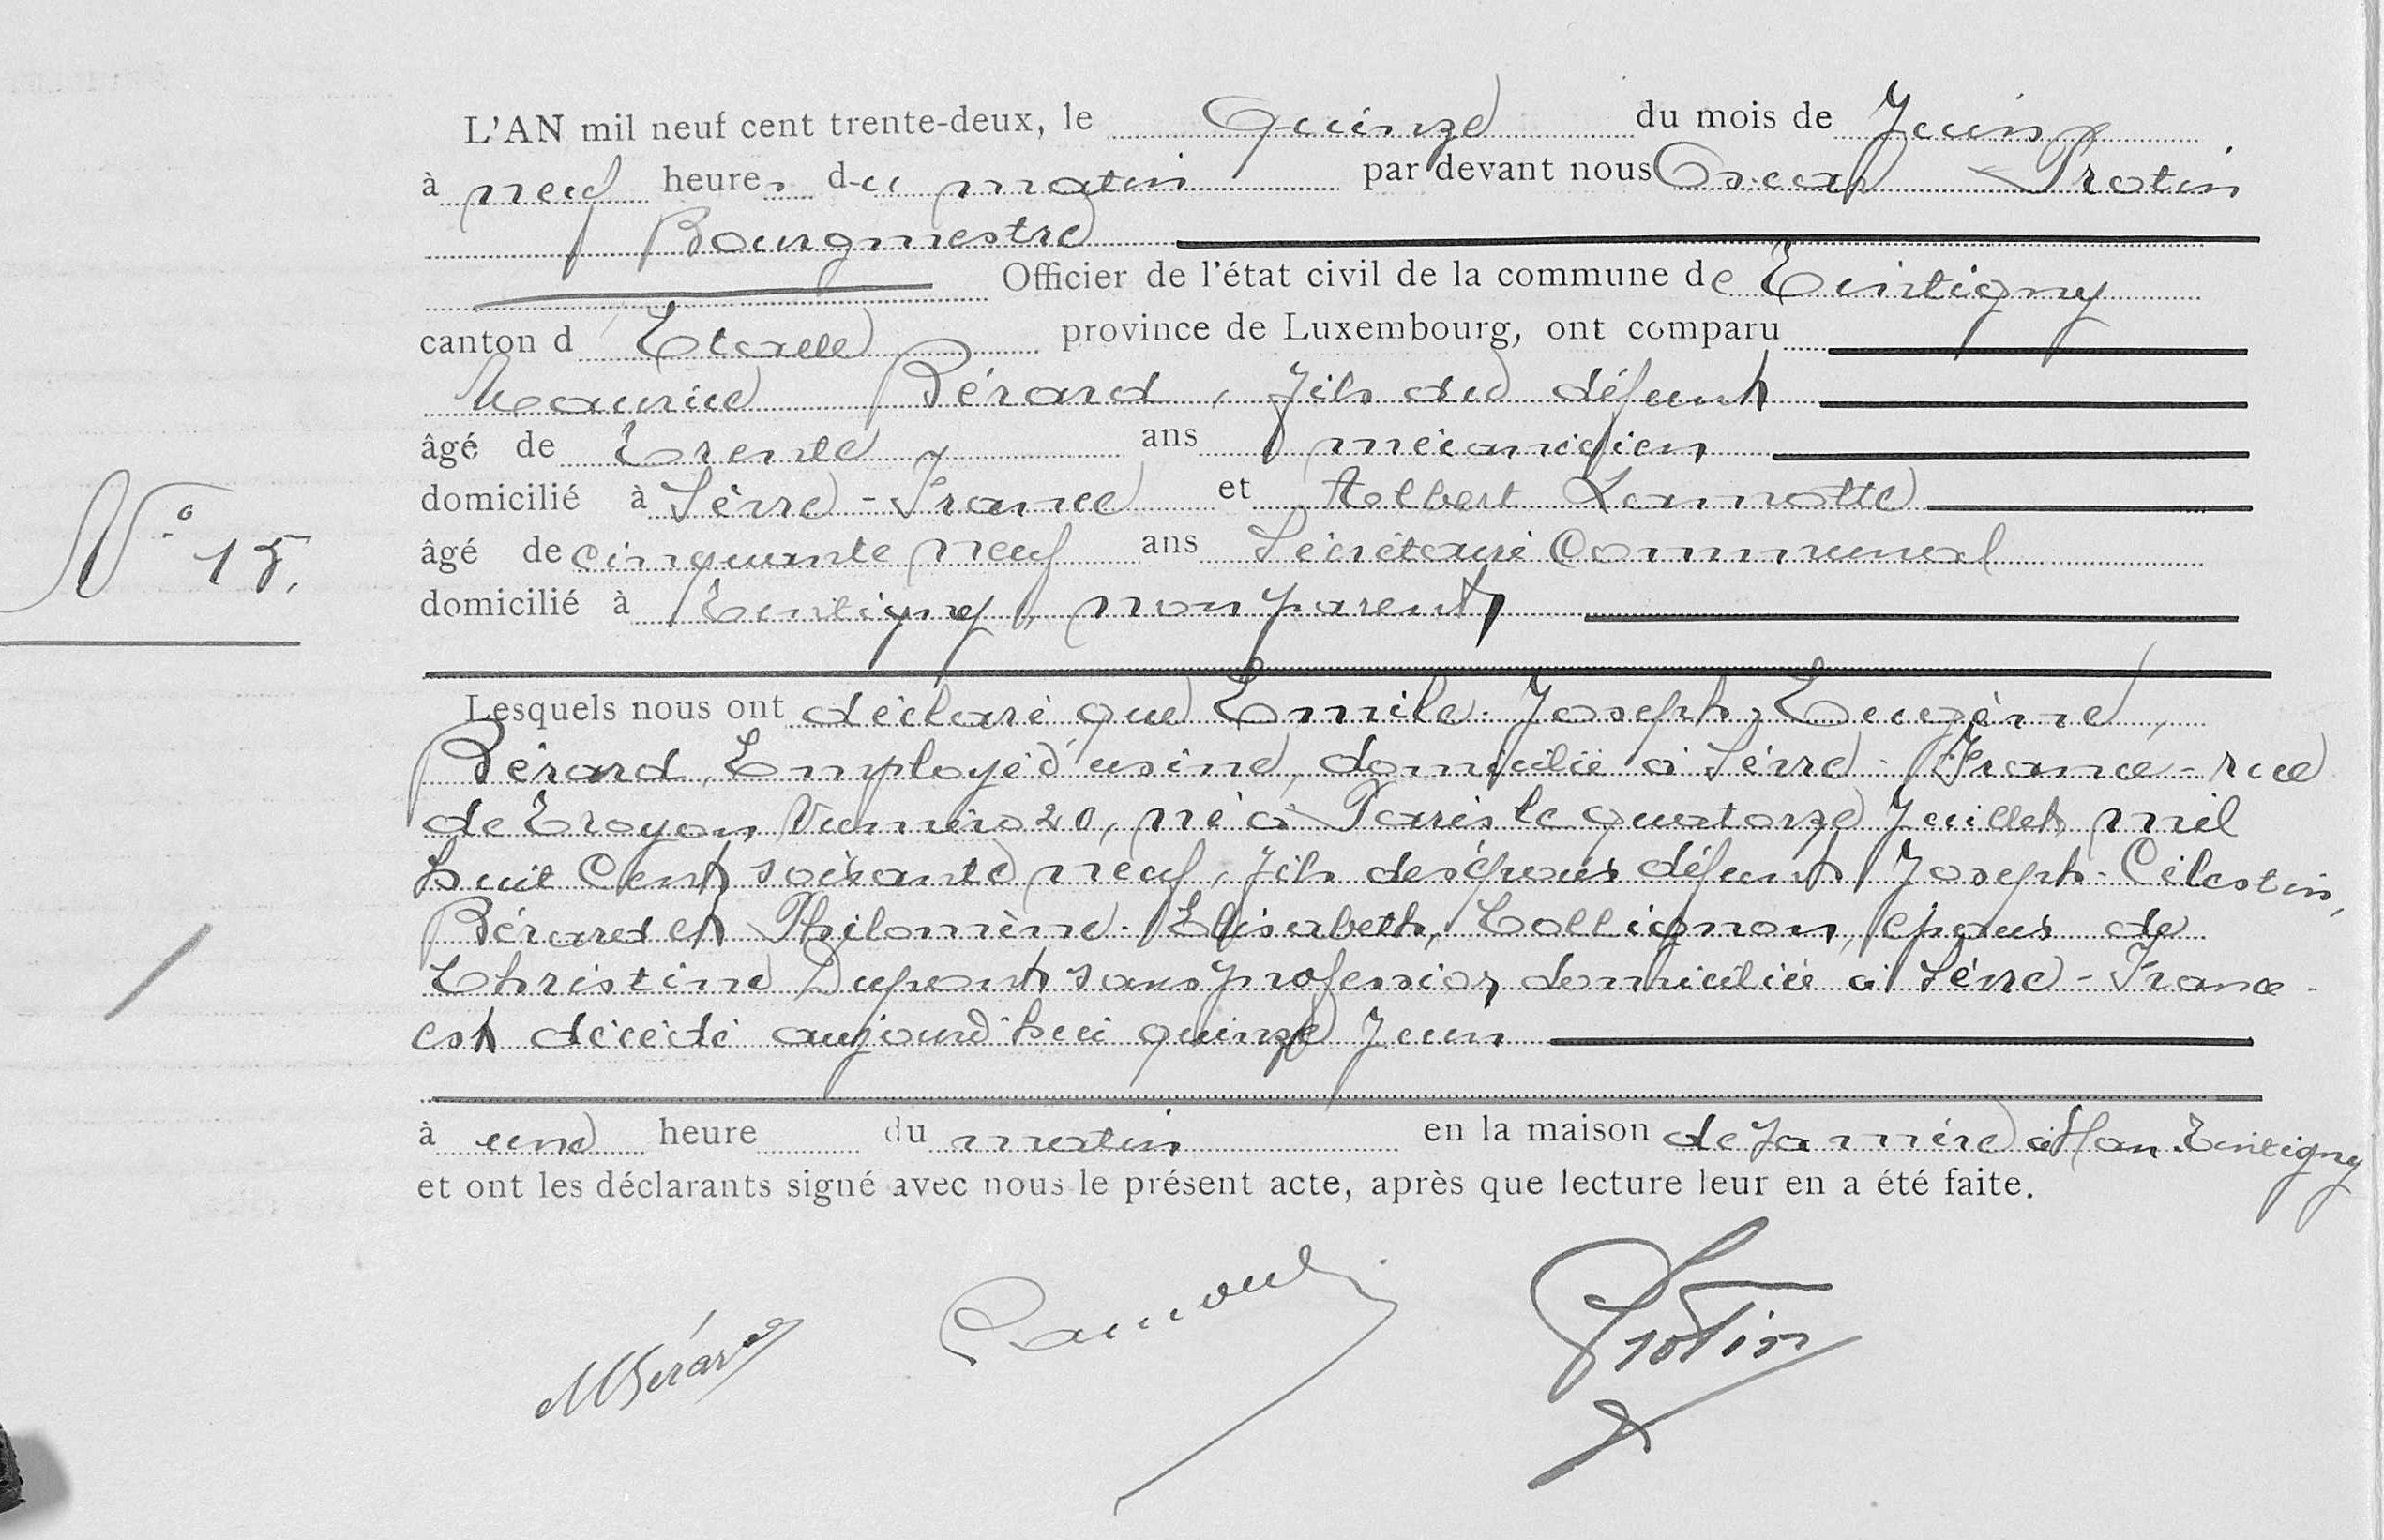 L'AN mil neuf cent trente-deux, le Quinze du mois de Juin
à neuf heures du matin par devant nous Oscar Protin
Bourgmestre
Officier de l'état civil de la commune de Tintigny
canton d'Etalle province de Luxembourg, ont comparu
Maurice Bérard, fils du défunt
âgé de Trente ans mécanicien
domicilié à Sèvre-France et Albert Lamotte
âgé de cinquante neuf ans Secrétaire Communal
domicilié à Tintigny, non parent
N° 15.
Lesquels nous ont déclaré que Emile-Joseph-Eugène,
Bérard, Employé d'usine, domicilié à Sèvre-France-rue
de Troyon Numéro 20, né à Paris le quatorze Juillet mil
huit Cent soixante neuf, fils des époux défunts Joseph-Célestin,
Bérard et Philomène-Elisabeth, Collignon, époux de
Christine Dupont sans profession, domiciliée à Sèvre-France-
est décédé aujourd'hui quinze Juin
à une heure du matin en la maison de sa mère à Han-Tintigny
et ont les déclarants signé avec nous le présent acte, après que lecture leur en a été faite.
MBérard Protin